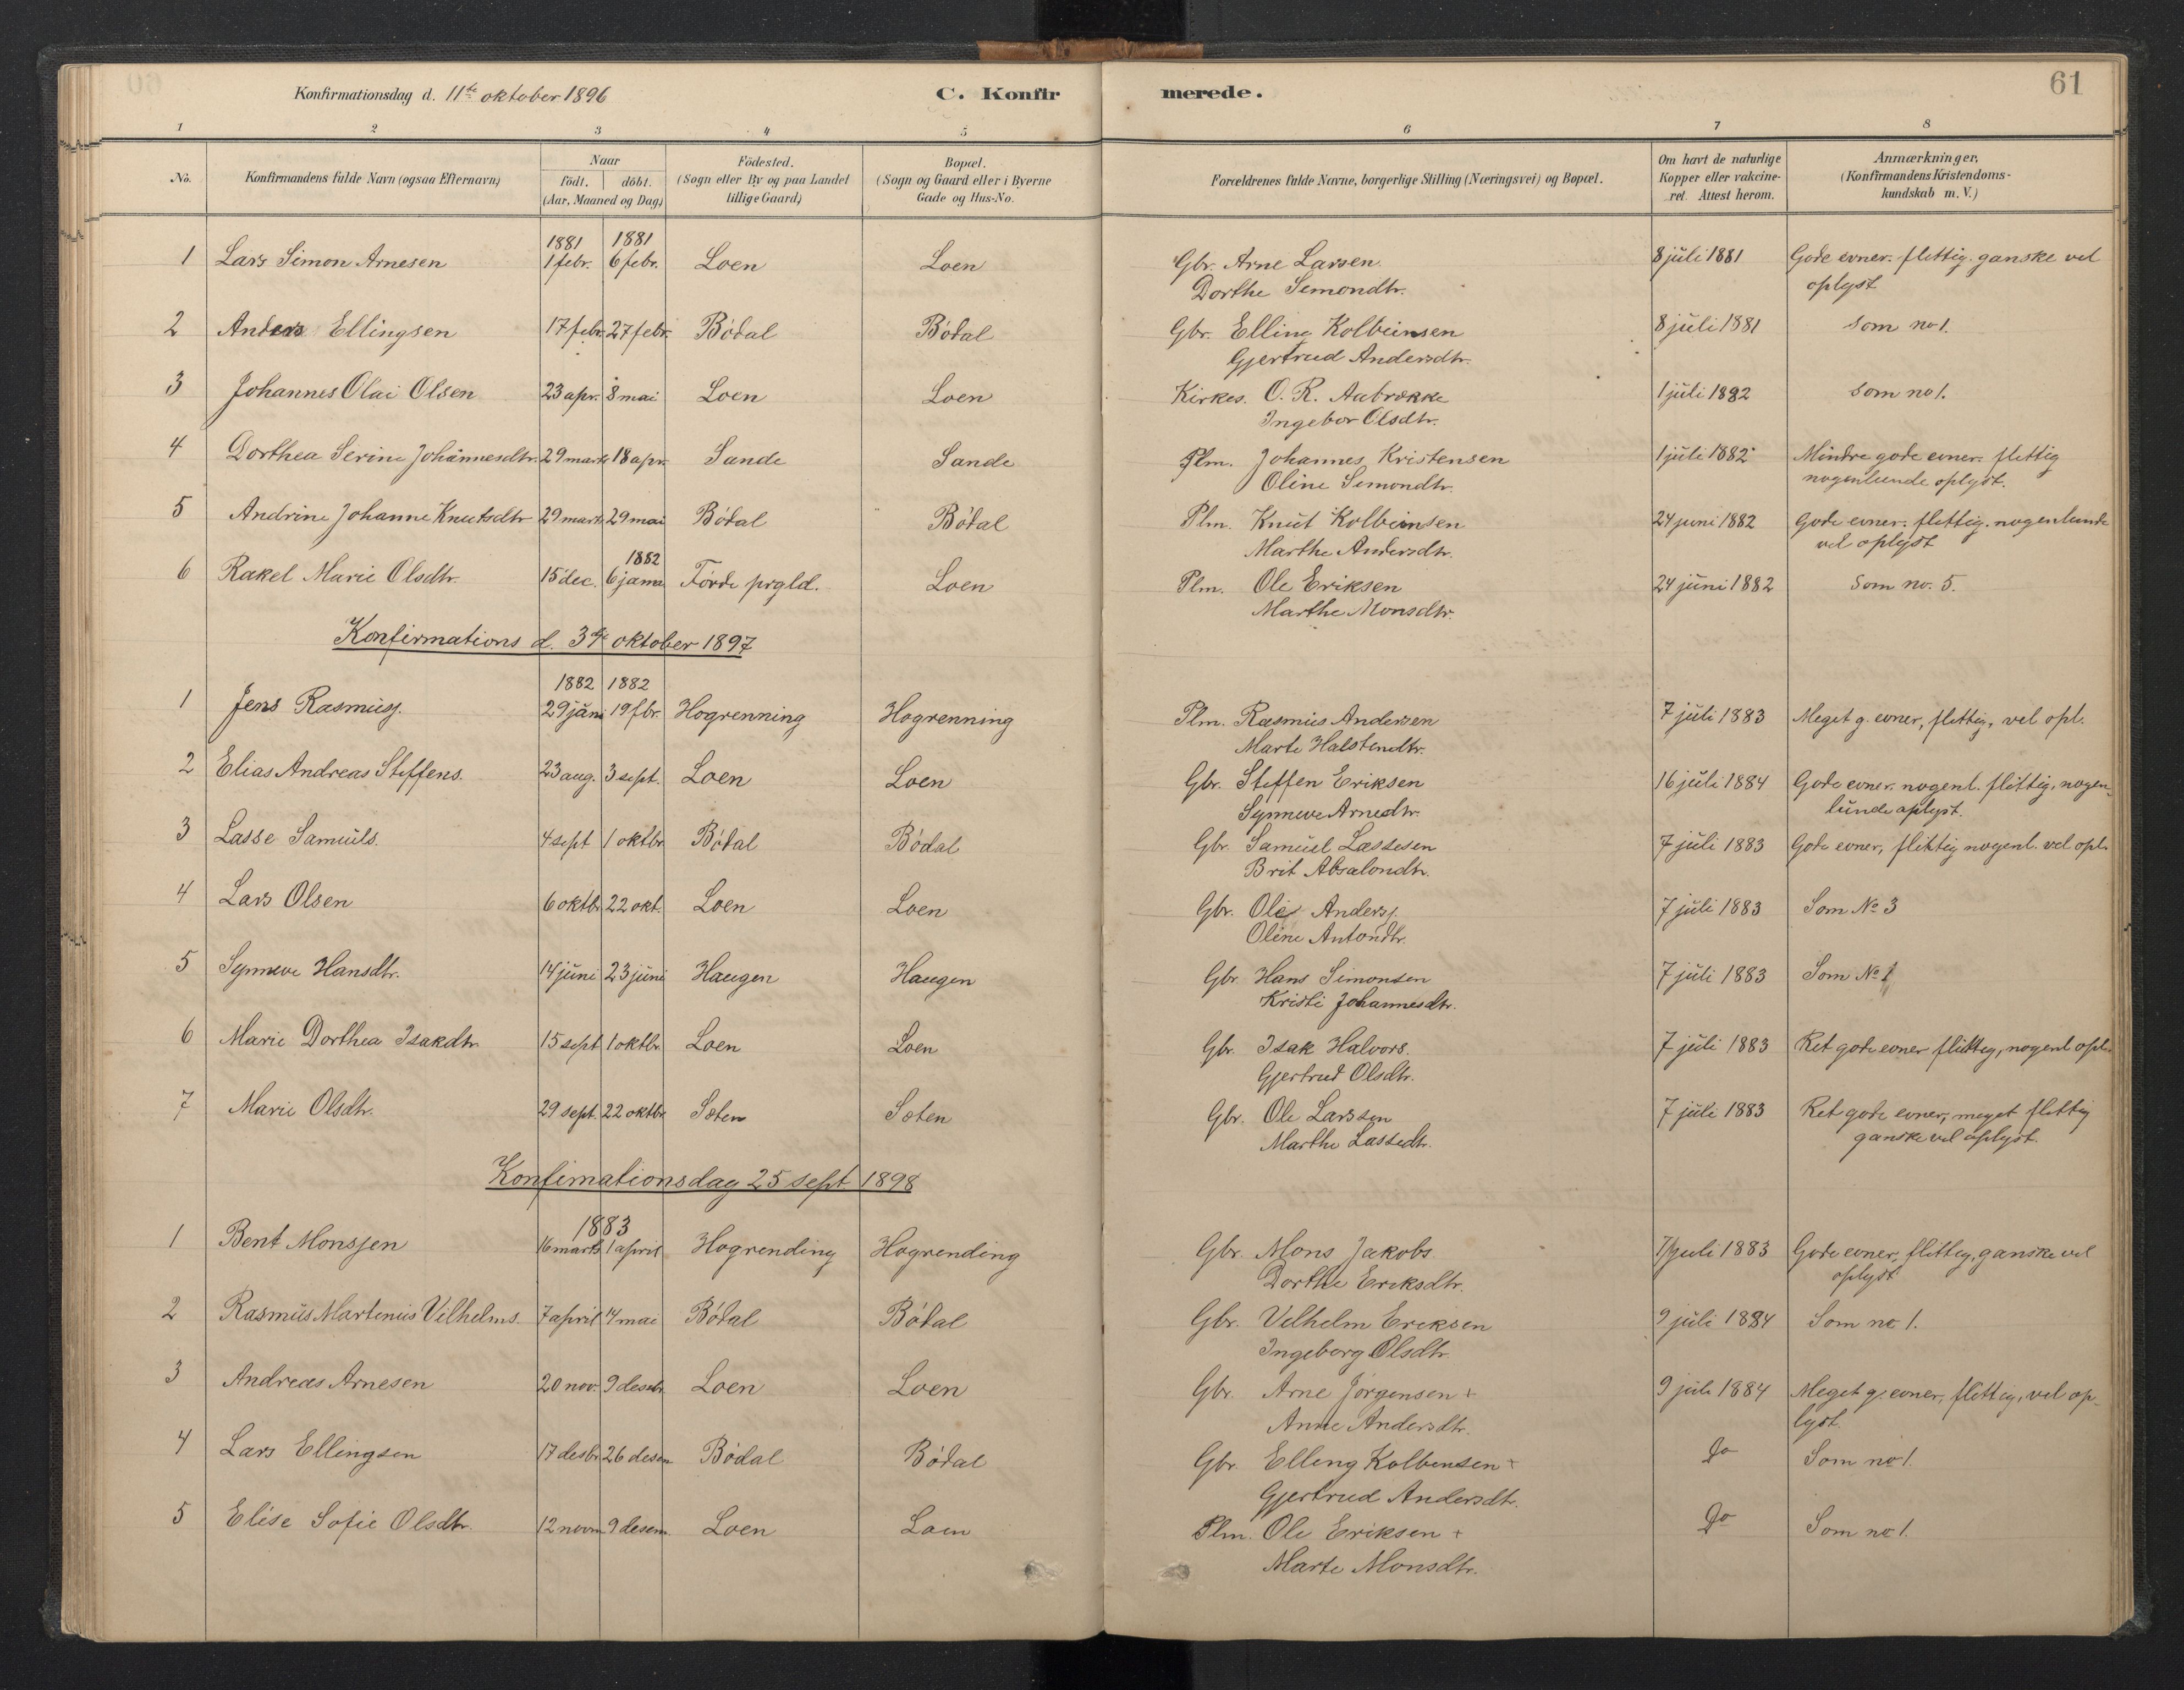 Konfirmationsdag d. 11te oktober 1896 C. Konfir merede. 61
1 2 3 4 5 6 7 8
No. Konfirmandens fulde Navn (ogsaa Efternavn) Naar födt. döbt. (Aar, Maaned og Dag) Födested. (Sogn eller By og paa Landet tillige Gaard) Bopæl. (Sogn og Gaard eller i Byerne Gade og Hus-No. Forældrenes fulde Navne, borgerlige Stilling (Næringsvei) og Bopæl. Om havt de naturlige Kopper eller vakcineret Attest herom. Anmærkninger, (Konfirmandens Kristendomskundskab m. V.)
1881 1881
1 Lars Simon Arnesen 1 febr. 6 febr. Loen Loen Gbr. Arne Larsen 8 juli 1881 Gode evner. flittig. ganske vel
Dorthe Simondtr. oplyst
2 Anders Ellingsen 17 febr. 27 febr. Bödal Bödal Gbr. Elling Kolbeinsen 8 juli 1881 som no 1.
Gjertrud Andersdtr.
3 Johannes Olai Olsen 23 apr. 8 mai Loen Loen Kirkes. O. R. Aabrække 1 juli 1882 som no 1.
Ingebor Olsdtr.
4 Dorthea Serine Johannesdtr. 29 marts 18 apr. Sande Sande Plm. Johannes Kristensen 1 juli 1882 Mindre gode evner. flittig
Oline Simondtr. nogenlunde oplyst.
5 Andrine Johanne Knutsdtr 29 marts 29 mai Bödal Bödal Plm. Knut Kolbeinsen 24 juni 1882 Gode evner. flittig. nogenlunde
Marthe Andersdtr. vel oplyst
1882
6 Rakel Marie Olsdtr. 15 dec. 6 janua Förde prgld. Loen Plm. Ole Eriksen 24 juni 1882 Som no. 5.
Marthe Monsdtr.
Konfirmations d. 3de oktober 1897
1882 1882
1 Jens Rasmuss. 29 jan 19 fbr. Hogrenning Hogrenning Plm. Rasmus Andersen 7 juli 1883 Meget g. evner, flittig, vel opl.
Marte Halstendtr.
2 Elias Andreas Steffens. 23 aug. 3 sept. Loen Loen Gbr. Steffen Eriksen 16 juli 1884 Gode evner. nogenl. flittig, nogen-
Synneve Arnesdtr. lunde oplyst.
3 Lasse Samuels. 4 sept 1 oktbr Bödal Bödal Gbr. Samuel Lassesen 7 juli 1883 Gode evner, flittig nogenl. vel opl.
Brit Absalondtr.
4 Lars Olsen 6 oktbr 22 okt. Loen Loen Gbr. Ole Anderss. 7 juli 1883 Som No 3
Oline Antondtr.
5 Synneve Hansdtr. 14 juni 23 juni Haugen Haugen Gbr. Hans Simonsen 7 juli 1883 Som No 1
Kristi Johannesdtr.
6 Marie Dorthea Isakdtr. 15 sept 1 oktbr. Loen Loen Gbr. Isak Halvors. 7 juli 1883 Ret gode evner flittig, nogenl opl.
Gjertrud Olsdtr.
7 Marie Olsdtr. 29 sept. 22 oktbr Sæten Sæten Gbr. Ole Larssen 7 juli 1883 Ret gode evner, meget flittig
Marthe Lassedtr. ganske vel oplyst.
Konfimationsdag 25 sept 1898
1883
1 Bent Monssen 16 marts 1 april Hogrending Hogrending Gbr. Mons Jakobs 7 juli 1883 Gode evner, flittig, ganske vel
Dorthe Eriksdtr. oplyst
2 Rasmus Martinius Vilhelms. 7 april 14 mai Bödal Bödal Gbr. Vilhelm Eriksen 9 juli 1884 Som no 1.
Ingeborg Olsdtr
3 Andreas Arnesen 20 nov. 9 desebr. Loen Loen Gbr. Arne Jörgensen + 9 juli 1884 Meget g. evner, flittig, vel op-
Anne Andersdtr. lyst.
4 Lars Ellingsen 17 desbr 26 desem Bödal Bödal Gbr. Elling Kolbensen + Do Som no 1.
Gjertrud Andersdtr.
5 Elise Sofie Olsdtr. 12 novm 9 desem. Loen Loen Plm. Ole Eriksen + Do Som no 1.
Marte Monsdtr.